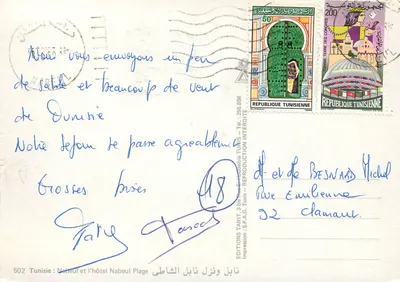 50
RÉPUBLIQUE TUNISIENNE
200
RÉPUBLIQUE TUNISIENNE
Nous vous envoyons un peu
de sable et beaucoup de vent
de Tunisie
Notre séjour se passe agréablement
Grosses bises
18
EDITIONS TANIT
REPRODUCTION INTERDITE
Impression : S.P.A.G. Tunis
M et Me BESNARD Michel
rue Emilienne
92 Clamart
502 Tunisie : Nabeul et l'hôtel Nabeul Plage
نابل ونزل نابل الشاطئ